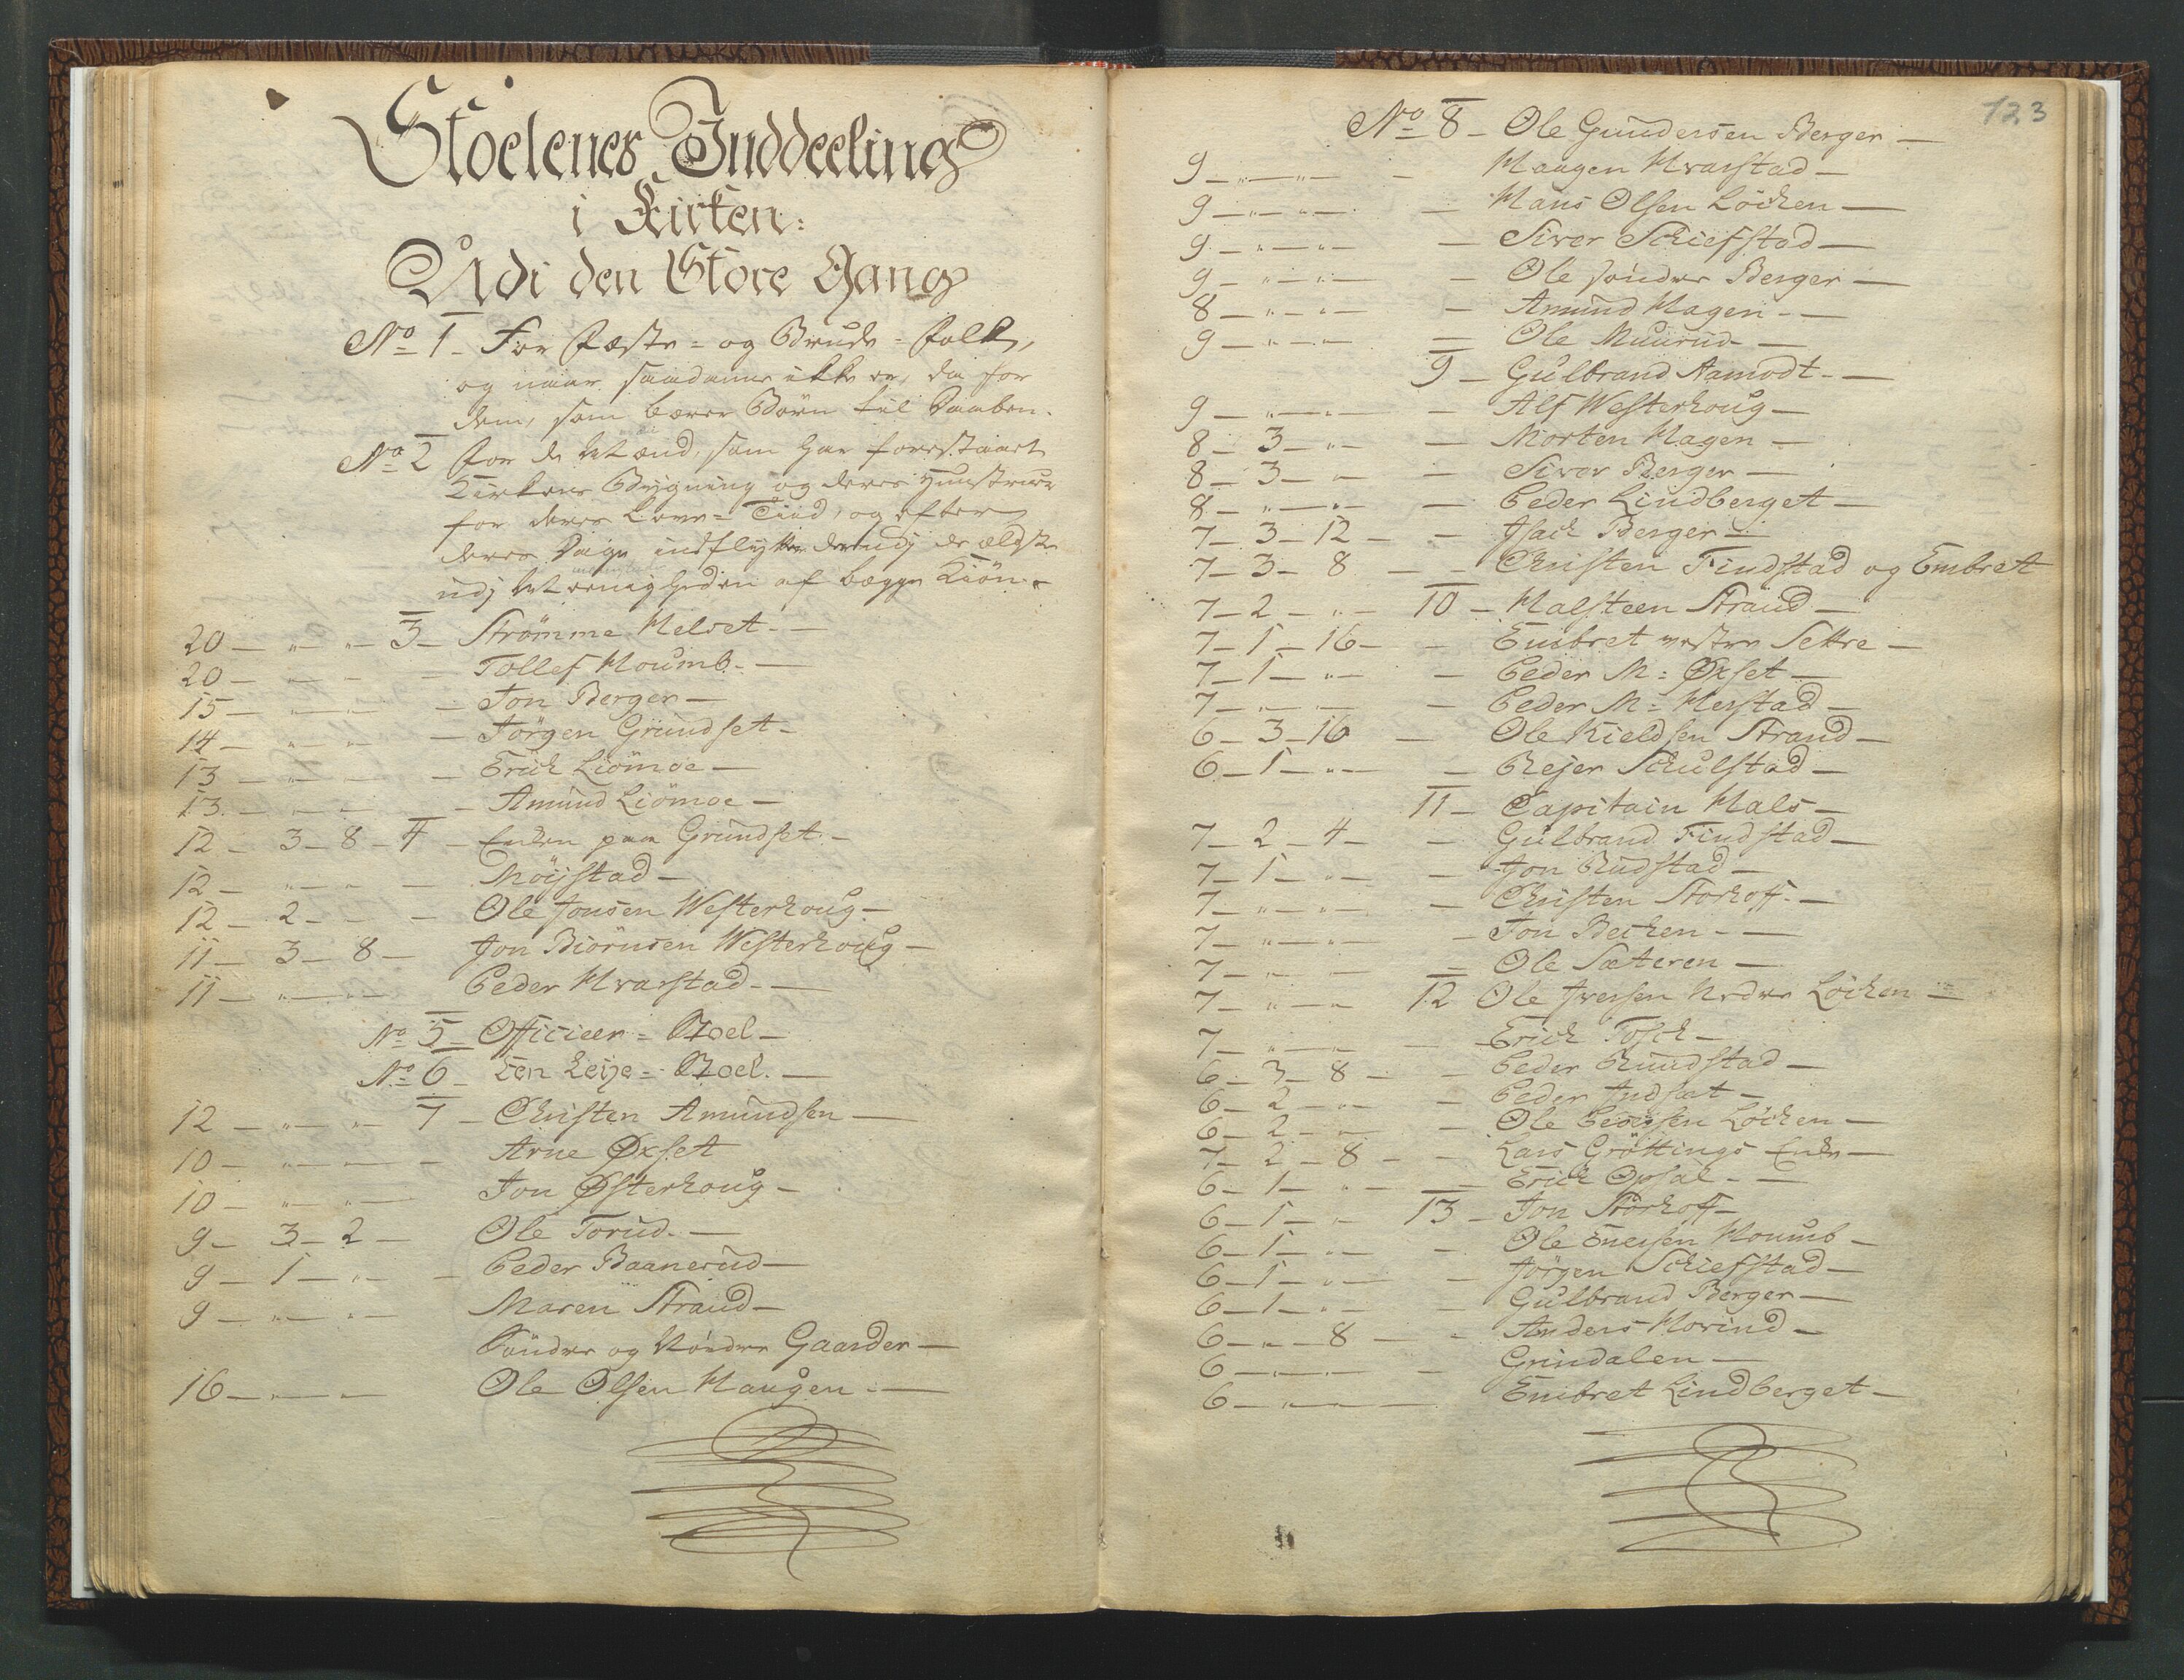 Stoelenes Inddeeling
i Kirken:
Udi den Store Gang
No 1 - For Fæste = og Brude = Folk,
og naar saadanne ikke er, da for
dem, som bærer Börn til Daaben.
No 2 for de Mænd, som har forestaaet
Kirkens Bygning og deres Hustruer
for deres Leve = Tiid, og efter
deres Dage indflytter derudj de ældste
udj Meenigheden af begge Kiön.
20 - " - " - 3 - Strömme Melset -
20 - " - " - Tollef Houmb -
15 - " - " - Jon Berger -
14 - " - " - Jörgen Grundset -
13 - " - " - Erich Liömoe -
13 - " - " - Amund Liömoe -
12 - 3 - 8 - 4 - Enken paa Grundset -
12 - " - " - Möystad -
12 - 2 - - Ole Jonsen Westerhoug -
11 - 3 - 8 - Jon Biörnsen Westerhoug -
11 - " - " - Peder Hvarstad -
No 5 - Officieer = Stoel -
No 6 - Een Leye = Stoel -
12 - " - " - 7 - Christen Amundsen -
10 - " - " - Arne Øxset
10 - " - " - Jon Østerhoug -
9 - 3 - 2 - Ole Torud -
9 - 1 - " - Peder Baanerud -
9 - " - " - Maren Strand -
Söndre og Nördre Gaarder -
16 - " - " - Ole Olsen Haugen -
123
No 8 - Ole Gundersen Berger -
9 - " - " - Haagen Hvarstad -
9 - " - " - Hans Olsen Löcken -
9 - " - " - Siver Schiefstad -
9 - " - " - Ole söndre Berger -
8 - " - " - Amund Hagen -
9 - " - " - Ole Muurud -
9 - Gulbrand Aamodt -
9 - " - " - Alf Westerhoug -
8 - 3 - " - Morten Hagen -
8 - 3 - " - Siver Berger -
8 - " - " - Peder Lindberget -
7 - 3 - 12 - Isach Berger -
7 - 3 - 8 - Christen Findstad og Embret
7 - 2 - " - 10 - Halsteen Strand -
7 - 1 - 16 - Embret vestre Settre -
7 - 1 - " - Peder M: Øxset -
7 - " - " - Peder M: Herstad -
6 - 3 - 16 - Ole Kieldsen Strand -
6 - 1 - " - Rejer Schulstad -
11 - Capitain Hals -
7 - 2 - 4 - Gulbrand Findstad -
7 - 1 - " - Jon Rudstad -
7 - " - " - Christen Storhoff -
7 - " - " - Jon Becken -
7 - " - " - Ole Sæteren -
7 - " - " - 12 Ole Iversen Nedre Löcken -
7 - " - " - Erich Tosch -
6 - 3 - 8 - Peder Rundstad -
6 - 2 - " - Peder Indset -
6 - 2 - " - Ole Löcken -
7 - 2 - 8 - Lars Gröttings Enke -
6 - 1 - " - Erich Opsal -
6 - 1 - " - 13 - Jon Storhoff -
6 - 1 - " - Ole Enersen Houmb -
6 - 1 - " - Jörgen Schiefstad -
6 - 1 - " - Gulbrand Berger -
6 - " - 8 - Anders Horind -
6 - " - " - Grindalen -
6 - " - " - Embret Lindberget -